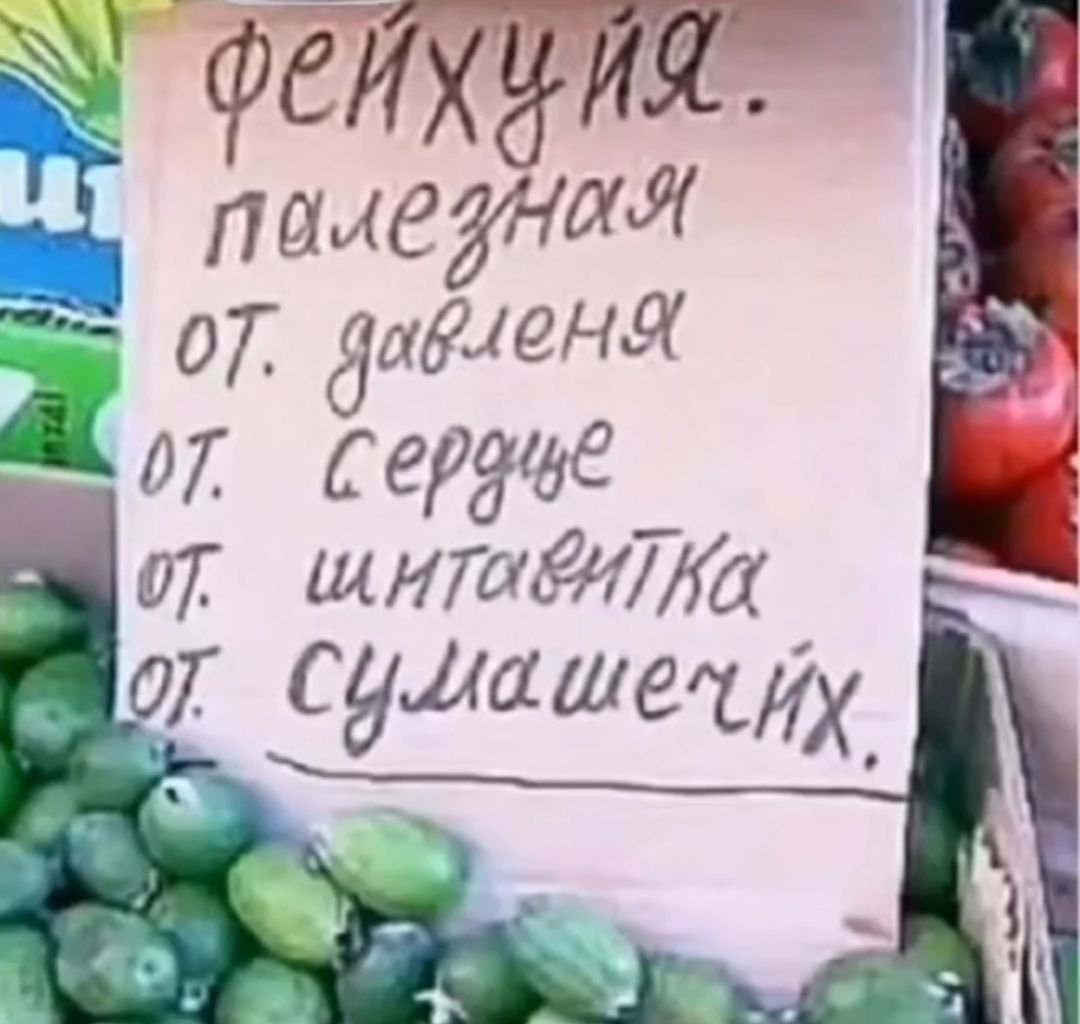 фейхуйя.
палезная
от. давленя
от. сердце
от. шнтавнтка
от. сумашечйх.